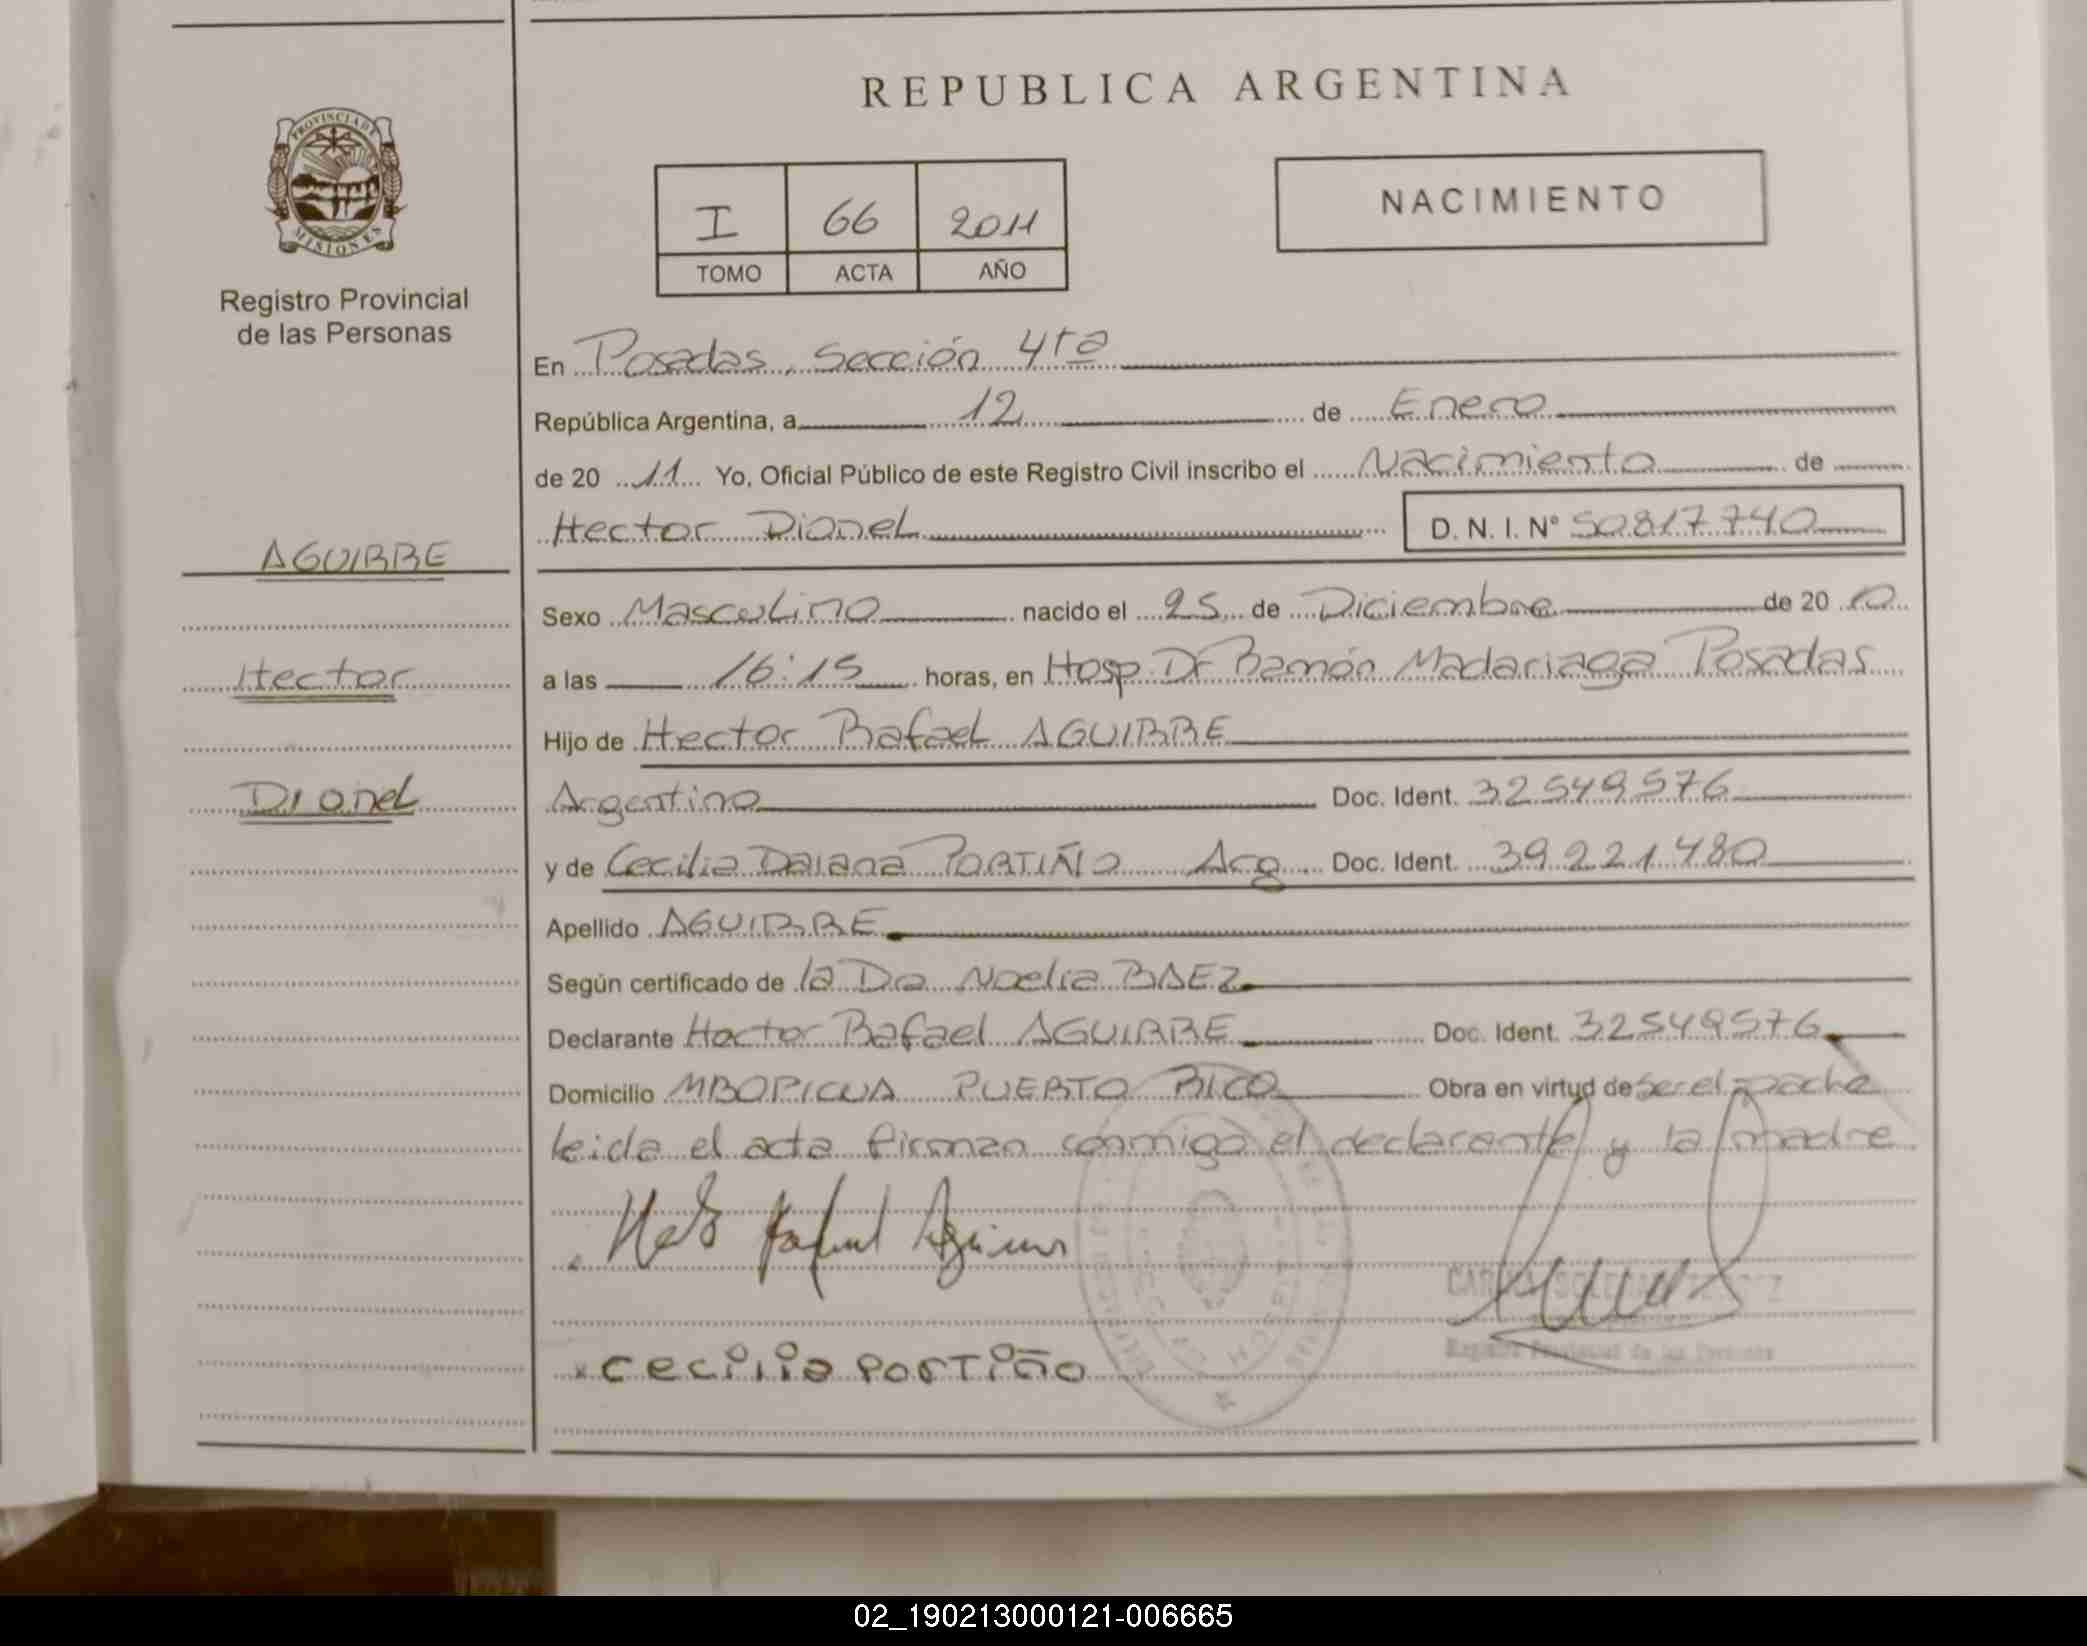 REPUBLICA ARGENTINA
PROVINCIA DE
MISIONES
Registro Provincial
de las Personas
I 66 2011
TOMO ACTA AÑO
NACIMIENTO
En Posadas, Sección 4ta
República Argentina, a 12 de Enero
de 20 11 Yo, Oficial Público de este Registro Civil inscribo el Nacimiento de
Hector Dionel D. N. I. Nº 50817740
AGUIRRE
Hector
Dionel
Sexo Masculino nacido el 25 de Diciembre de 20 10
a las 16:15 horas, en Hosp. Dr Ramón Madariaga Posadas
Hijo de Hector Rafael AGUIRRE
Argentino Doc. Ident. 32549576
y de Cecilia Daiana PORTIÑO Arg Doc. Ident. 39221480
Apellido AGUIRRE
Según certificado de la Dra Noelia BAEZ
Declarante Hector Rafael AGUIRRE Doc. Ident. 32549576
Domicilio MBOPICUA PUERTO RICO Obra en virtud de ser el padre
leida el acta firman conmigo el declarante y la madre
Rafael Aguirre
x cecilia PORTiño
Registro Provincial de las Personas
02_190213000121-006665